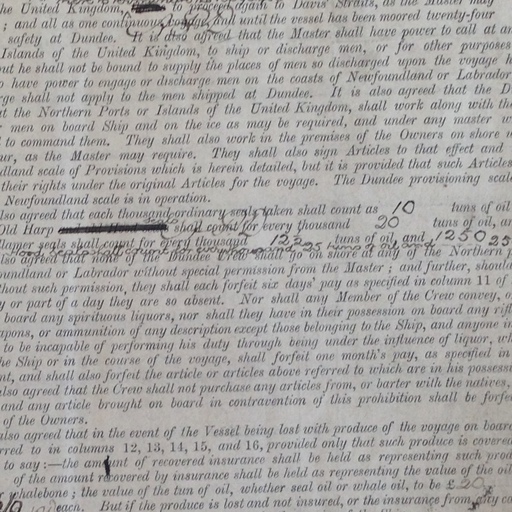 the United King again to Davis' Straits, as the Master may
; and all as one continuous voyage, and until the vessel has been moored twenty-four
safety at Dundee. It is also agreed that the Master shall have power to call at an
Islands of the United Kingdom, to ship or discharge men, or for other purposes
but he shall not be bound to supply the places of men so discharged upon the voyage h
o have power to engage or discharge men on the coasts of Newfoundland or Labrador
rge shall not apply to the men shipped at Dundee. It is also agreed that the D
at the Northern Ports or Islands of the United Kingdom, shall work along with the
r men on board Ship and on the ice as may be required, and under any master w
d to command them. They shall also work in the premises of the Owners on shore w
ur, as the Master may require. They shall also sign Articles to that effect and
dland scale of Provisions which is herein detailed, but it is provided that such Articles
their rights under the original Articles for the voyage. The Dundee provisioning scale
Newfoundland scale is in operation.
lso agreed that each thousand ordinary seals taken shall count as 10 tuns of oil
Old Harp shall count for every thousand 20 tuns of oil, an
seals shall count for every thousand tuns of oil, and 1250 25
also agreed that none of the Dundee crew shall go on shore at any of the Northern p
oundland or Labrador without special permission from the Master; and further, should
thout such permission, they shall each forfeit six days' pay as specified in column 11 of
y or part of a day they are so absent. Nor shall any Member of the Crew convey, o
board any spirituous liquors, nor shall they have in their possession on board any rifl
apons, or ammunition of any description except those belonging to the Ship, and anyone in
to be incapable of performing his duty through being under the influence of liquor, wh
he Ship or in the course of the voyage, shall forfeit one month's pay, as specified in
nt, and shall also forfeit the article or articles above referred to which are in his possess
also agreed that the Crew shall not purchase any articles from, or barter with the natives,
and any article brought on board in contravention of this prohibition shall be forfei
of the Owners.
also agreed that in the event of the Vessel being lost with produce of the voyage on board
rred to in columns 12, 13, 14, 15, and 16, provided only that such produce is covered
to say:—the amount of recovered insurance shall be held as representing such prod
of the amount recovered by insurance shall be held as representing the value of the oil
r whalebone; the value of the tun of oil, whether seal oil or whale oil, to be £20
each. But if the produce is lost and not insured, or the insurance from any ca